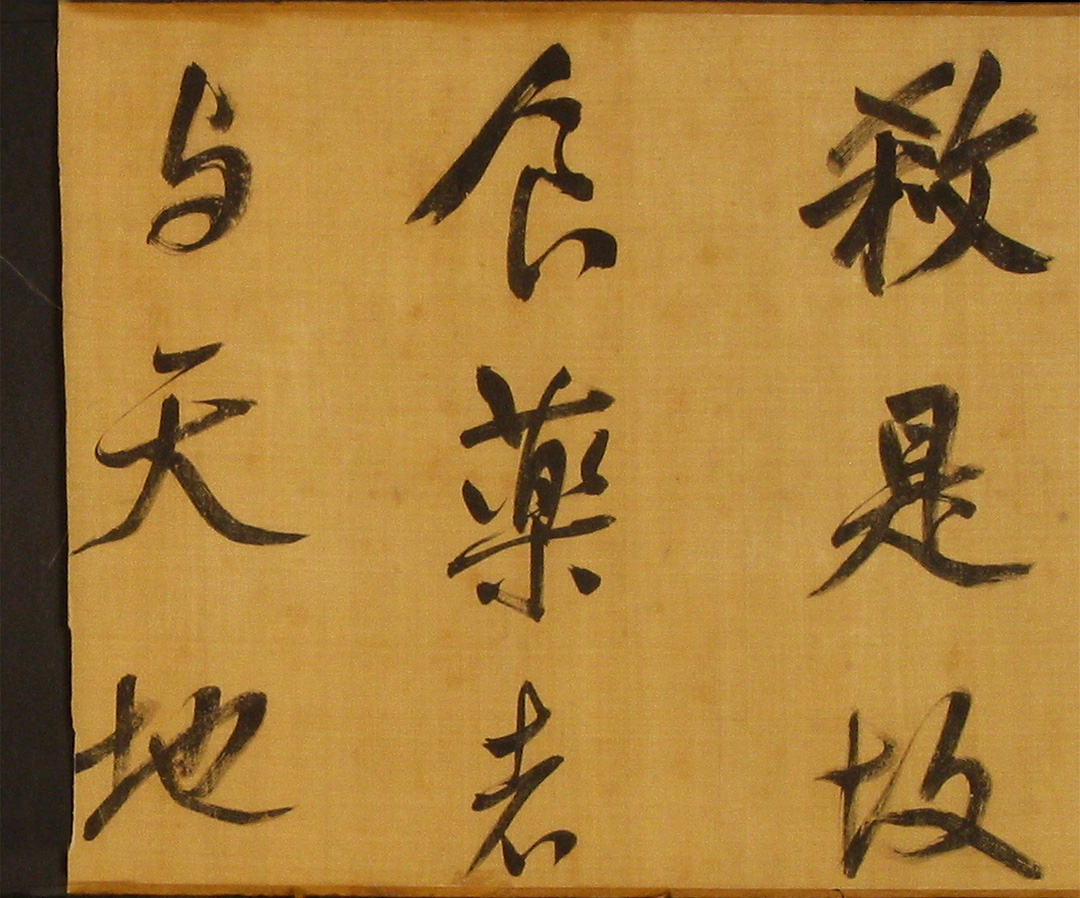 殺是故
食藥者
与天地